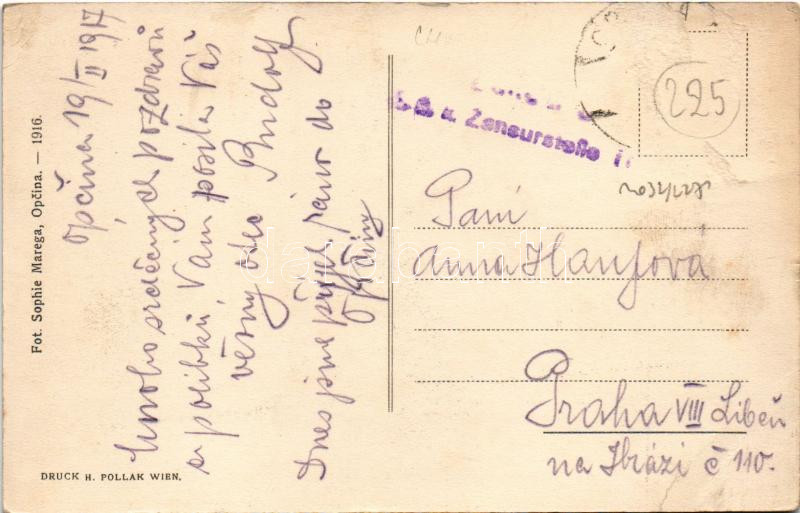 Opčina 19/II 1917
Mnoho srdečných pozdravů
a políbků Vám posílá Váš
věrný otec Rudolf
Dnes jsme přijel ráno do
Opčiny
Fot. Sophie Marega, Opčina. — 1916.
DRUCK H. POLLAK WIEN.
225
Zensurstelle
Paní
Anna
Praha VIII Libeň
na Hrázi č 110.